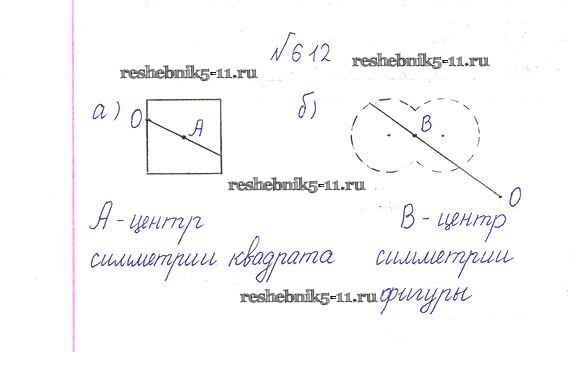 №612
reshebnik5-11.ru
reshebnik5-11.ru
а) О А
б) В О
reshebnik5-11.ru
А - центр
симметрии квадрата
В - центр
симметрии
фигуры
reshebnik5-11.ru